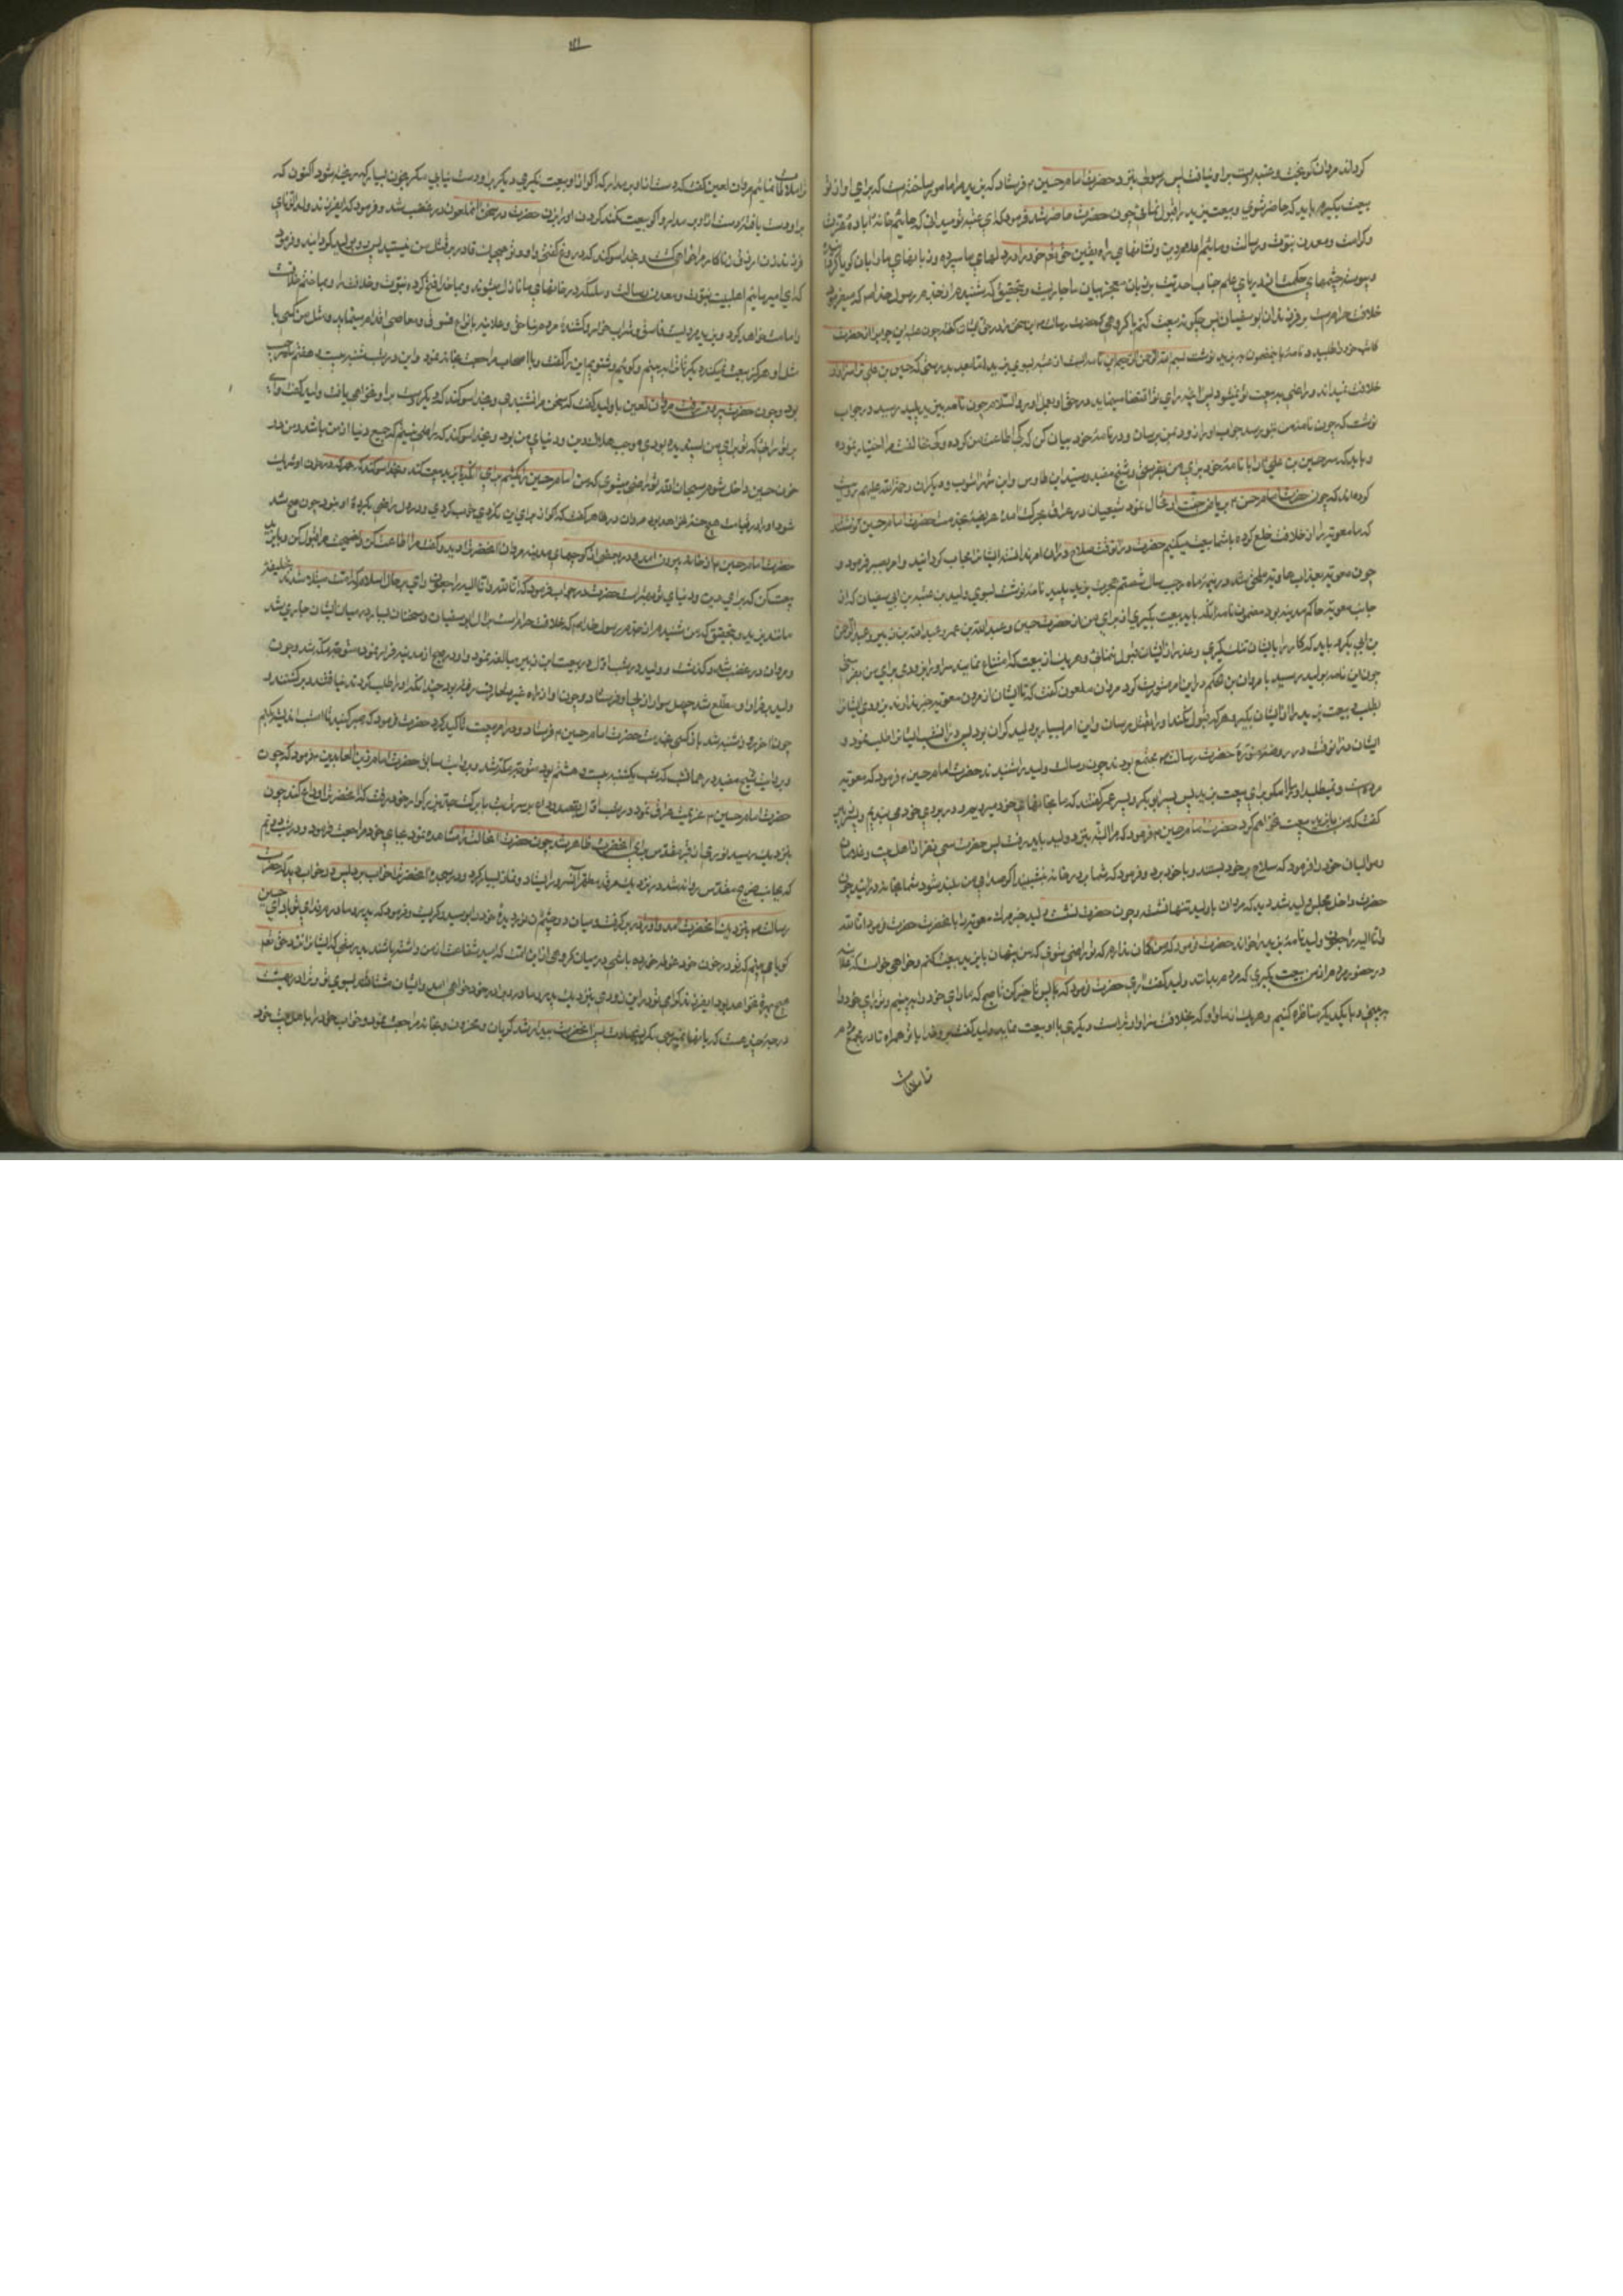 کرداند مروان کریخت و عتبه دست بر او نیافت پس رسولی بنزد حضرت امام حسین م فرستاد که یزید مرا مامور ساخته است که برای او از تو
بیعت بگیرم باید که حاضر شوی و بیعت یزید را قبول نمائی چون حضرت حاضر شد فرمود که ای عتبه تو میدانی که مائیم خانه آباده عزت
و کرامت و معدن نبوت و رسالت و مائیم اعلام دین و نشانهای راه یقین حق تعالی خود را در دلهای ما سپرده و زبانهای ما را بان کویا کردانیده
و پیوسته چشمهای حکمت از دریای علم جناب احدیت بر زبان معجز بیان ما جاریست و بتحقیق که شنیدم از جدم رسول خدا م که میفرمود
خلافت حرام است بر فرزندان ابو سفیان پس چکونه بیعت کنم با کروهی که حضرت رسالت م این سخن در حق ایشان گفته چون عتبه این جواب از حضرت
کاتب خود را طلبید و نامه باین مضمون به یزید نوشت بسم الله الرحمن الرحیم این نامه ایست از عتبه بسوی یزید اما بعد بدرستی که حسین بن علی ترا سزاوار
خلافت نمیداند و راضی به بیعت تو نمیشود پس آنچه رای تو اقتضا مینماید در حق او بعمل اور و السلام چون نامه بیزید پلید رسید در جواب
نوشت که چون نامه من بتو برسد جواب او را زود بمن برسان و در نامه خود بیان کن که کی اطاعت من کرده و کی مخالفت مرا اختیار نموده
و باید که سر حسین بن علی را با نامه خود برای من بفرستی و شیخ مفید و سید ابن طاوس و ابن شهر اشوب و دیکران رحمة الله علیهم روایت
کرده اند که چون حضرت امام حسن م بریاض جنت ارتحال نمود شیعیان در عراق بحرکت آمده عریضه بخدمت حضرت امام حسین نوشتند
که ما معویه را از خلافت خلع کرده با شما بیعت میکنیم حضرت در انوقت صلاح در ان امر ندانسته ایشانرا جواب کردانید و امر بصبر فرمود و
چون معویه بعذاب هاویه ملحق شد در نیمه ماه رجب سال شصتم هجرت یزید پلید نامه نوشت بسوی ولید بن عتبه بن ابی سفیان که از
جانب معویه حاکم مدینه بود مضمون نامه انکه باید بیعت بگیری از برای من از حضرت حسین و عبدالله بن عمر و عبدالله بن زبیر و عبدالرحمن
بن ابی بکر و باید که کار را بایشان تنک کیری و عذر از ایشان قبول ننمائی و هر یک از بیعت که امتناع نمایند سر او را بزودی برای من بفرستی
چون این نامه بولید رسید با مروان بن حکم در این امر مشورت کرد مروان ملعون گفت که تا ایشان از مردن معویه خبر ندارند بزودی ایشانرا
بطلب و بیعت یزید را از ایشان بگیر و هر که قبول نکند او را بقتل برسان و این امر بسیار بر ولید کران بود پس در انشب ایشانرا طلب نمود و
ایشان در انوقت در روضه منوره حضرت رسالت م مجتمع بودند چون رسالت ولید را شنیدند حضرت امام حسین م فرمود که معویه
مرده است و میطلبد او مرا مکر برای بیعت یزید پس پسر ابوبکر و پسر عمر گفتند که ما بخانهای خود میرویم و در بروی خود می بندیم و پسر زبیر
گفت که من با یزید بیعت نخواهم کرد حضرت امام حسین م فرمود که مرا البته بنزد ولید باید رفت پس حضرت سی نفر از اهل بیت و غلامان
و موالیان خود را فرمود که سلاح بر خود بستند و با خود برد و فرمود که شما بر در خانه بنشینید اکر صدای من بلند شود شما بخانه در ائید چون
حضرت داخل مجلس ولید شد دید که مروان با ولید تنها نشسته و چون حضرت نشست ولید خبر مرک معویه را با حضرت گفت حضرت فرمود انا لله
و انا الیه راجعون ولید نامه یزید را خواند حضرت فرمود که من کمان ندارم که تو راضی شوی که من پنهان با یزید بیعت کنم و خواهی خواست که علانیه
در حضور مردم از من بیعت بگیری که مردم بدانند ولید گفت آری حضرت فرمود که پس تاخیر کن تا صبح که ما رای خود را ببینیم و تو رای خود را
ببینی و با یکدیکر مناظره کنیم و هر یک از ما و او که بخلافت سزاوار تر است دیکری با او بیعت نماید ولید گفت برو خدا با تو همراه تا در مجمع مردم
ترا ملاقات
۱۲۱
ترا ملاقات نمائیم مروان لعین گفت که دست از او بر مدار که اکر از او بیعت نکیری دیکر بر او دست نیابی مکر خون بسیار که ریخته شود اکنون که
بر او دست یافته دست از او بر مدار و اکر بیعت نکند کردن او را بزن حضرت در سخن آن ملعون در غضب شد و فرمود که ای فرزند ولد الزنای
کدای امیر مائیم اهلبیت نبوت و معدن رسالت و ملائکه در خانهای ما نازل میشوند و بما خدا فتح کرده نبوت و خلافت را و بما ختم خلافت
و امامت خواهد کرد و یزید مردیست فاسق و شراب خوار و کشنده مردم بناحق و علانیه بانواع فسوق و معاصی اقدام مینماید و مثل من کسی با
مثل او هرکز بیعت نمیکند دیکر تا ترا ببینیم و کوئیم و شنویم این را گفت و با اصحاب مراجعت بخانه نمود و این در شب شنبه بیست و هفتم ماه رجب
بود و چون حضرت بیرون رفت مروان لعین با ولید گفت که سخن مرا نشنیدی و بخدا سوکند که دیکر دست بر او نخواهی یافت ولید گفت وای
بر تو رائی که تو برای من پسندیده بودی موجب هلاک دین و دنیای من بود و بخدا سوکند که راضی نیستم که جمیع دنیا از من باشد و من در
خون حسین داخل شوم سبحان الله تو راضی میشوی که من امام حسین را بکشم برای انکه با یزید بیعت نکند و بخدا سوکند که هر که در خون او شریک
شود او را در قیامت هیچ حسنه نخواهد بود مروان در ظاهر گفت که اکر از برای این نکردی خوب کردی و در دل راضی بکرده او نبود چون صبح شد
حضرت امام حسین م از خانه بیرون آمد و در بعضی از کوچهای مدینه مروان آنحضرت را دید و گفت مرا اطاعت کن و نصیحت مرا قبول کن و با یزید
بیعت کن که برای دین و دنیای تو بهتر است حضرت در جواب فرمود که انا لله و انا الیه راجعون وای بر حال اسلام که امت مبتلا شدند بخلیفه
مانند یزید و بتحقیق که من شنیدم از جدم رسول خدا م که خلافت حرامست بر آل ابو سفیان و سخنان بسیار در میان ایشان جاری شد
و مروان در غضب شد و کذشت و ولید در شب اول در بیعت ابن زبیر مبالغه نمود و او در صبح از مدینه فرار نمود متوجه مکه شد و چون
ولید بر فرار او مطلع شد چهل سوار از پی او فرستاد و چون او از راه غیر متعارف رفته بود چندانکه او را طلب کردند نیافتند و برکشتند و
چون اخر روز شنبه شد باز کسی بخدمت حضرت امام حسین م فرستاد و در امر بیعت تاکید کرد حضرت فرمود که صبر کنید تا امشب اندیشه بکنم
و بروایت شیخ مفید در همانشب که شب یکشنبه بیست و هشتم بود متوجه مکه شد و بروایت سابق حضرت امام زین العابدین فرمود که چون
حضرت امام حسین م عزیمت عراق نمود در شب اول بقصد وداع بر سر تربت با برکت جد بزرکوار خود رفت که انحضرت را وداع کند چون
بنزدیک رسید نوری از قبر مقدس برای آنحضرت ظاهر شد چون حضرت انحالت را مشاهده نمود بجای خود مراجعت فرمود و در شب دویم
که بجانب ضریح مقدس روانه شد در نزدیک مرقد مطهر آنسرور ایستاد و نماز بسیار کرد و در سجده آنحضرت را خواب برد پس در خواب دید که حضرت
رسالت م بنزدیک آنحضرت آمد و او را در بر گرفت و میان دو چشم نور دیده خود را بوسید و کریست و فرمود که پدر و مادرم فدای تو باد ای حسین
کویا می بینم که تو در خون خود غوطه خورده باشی در میان کروهی از این امت که امید شفاعت از من داشته باشند بدرستی که ایشانرا نزد حق تعالی
هیچ بهره نخواهد بود ای فرزند کرامی تو در این زودی بنزدیک پدر و مادر و برادر خود خواهی آمد و ایشان مشتاقند بسوی تو و ترا در بهشت
درجه چند هست که بانها نمیرسی مکر بشهادت پس آنحضرت بیدار شد کریان و محزون و بخانه مراجعت نمود و خواب خود را باهل بیت خود